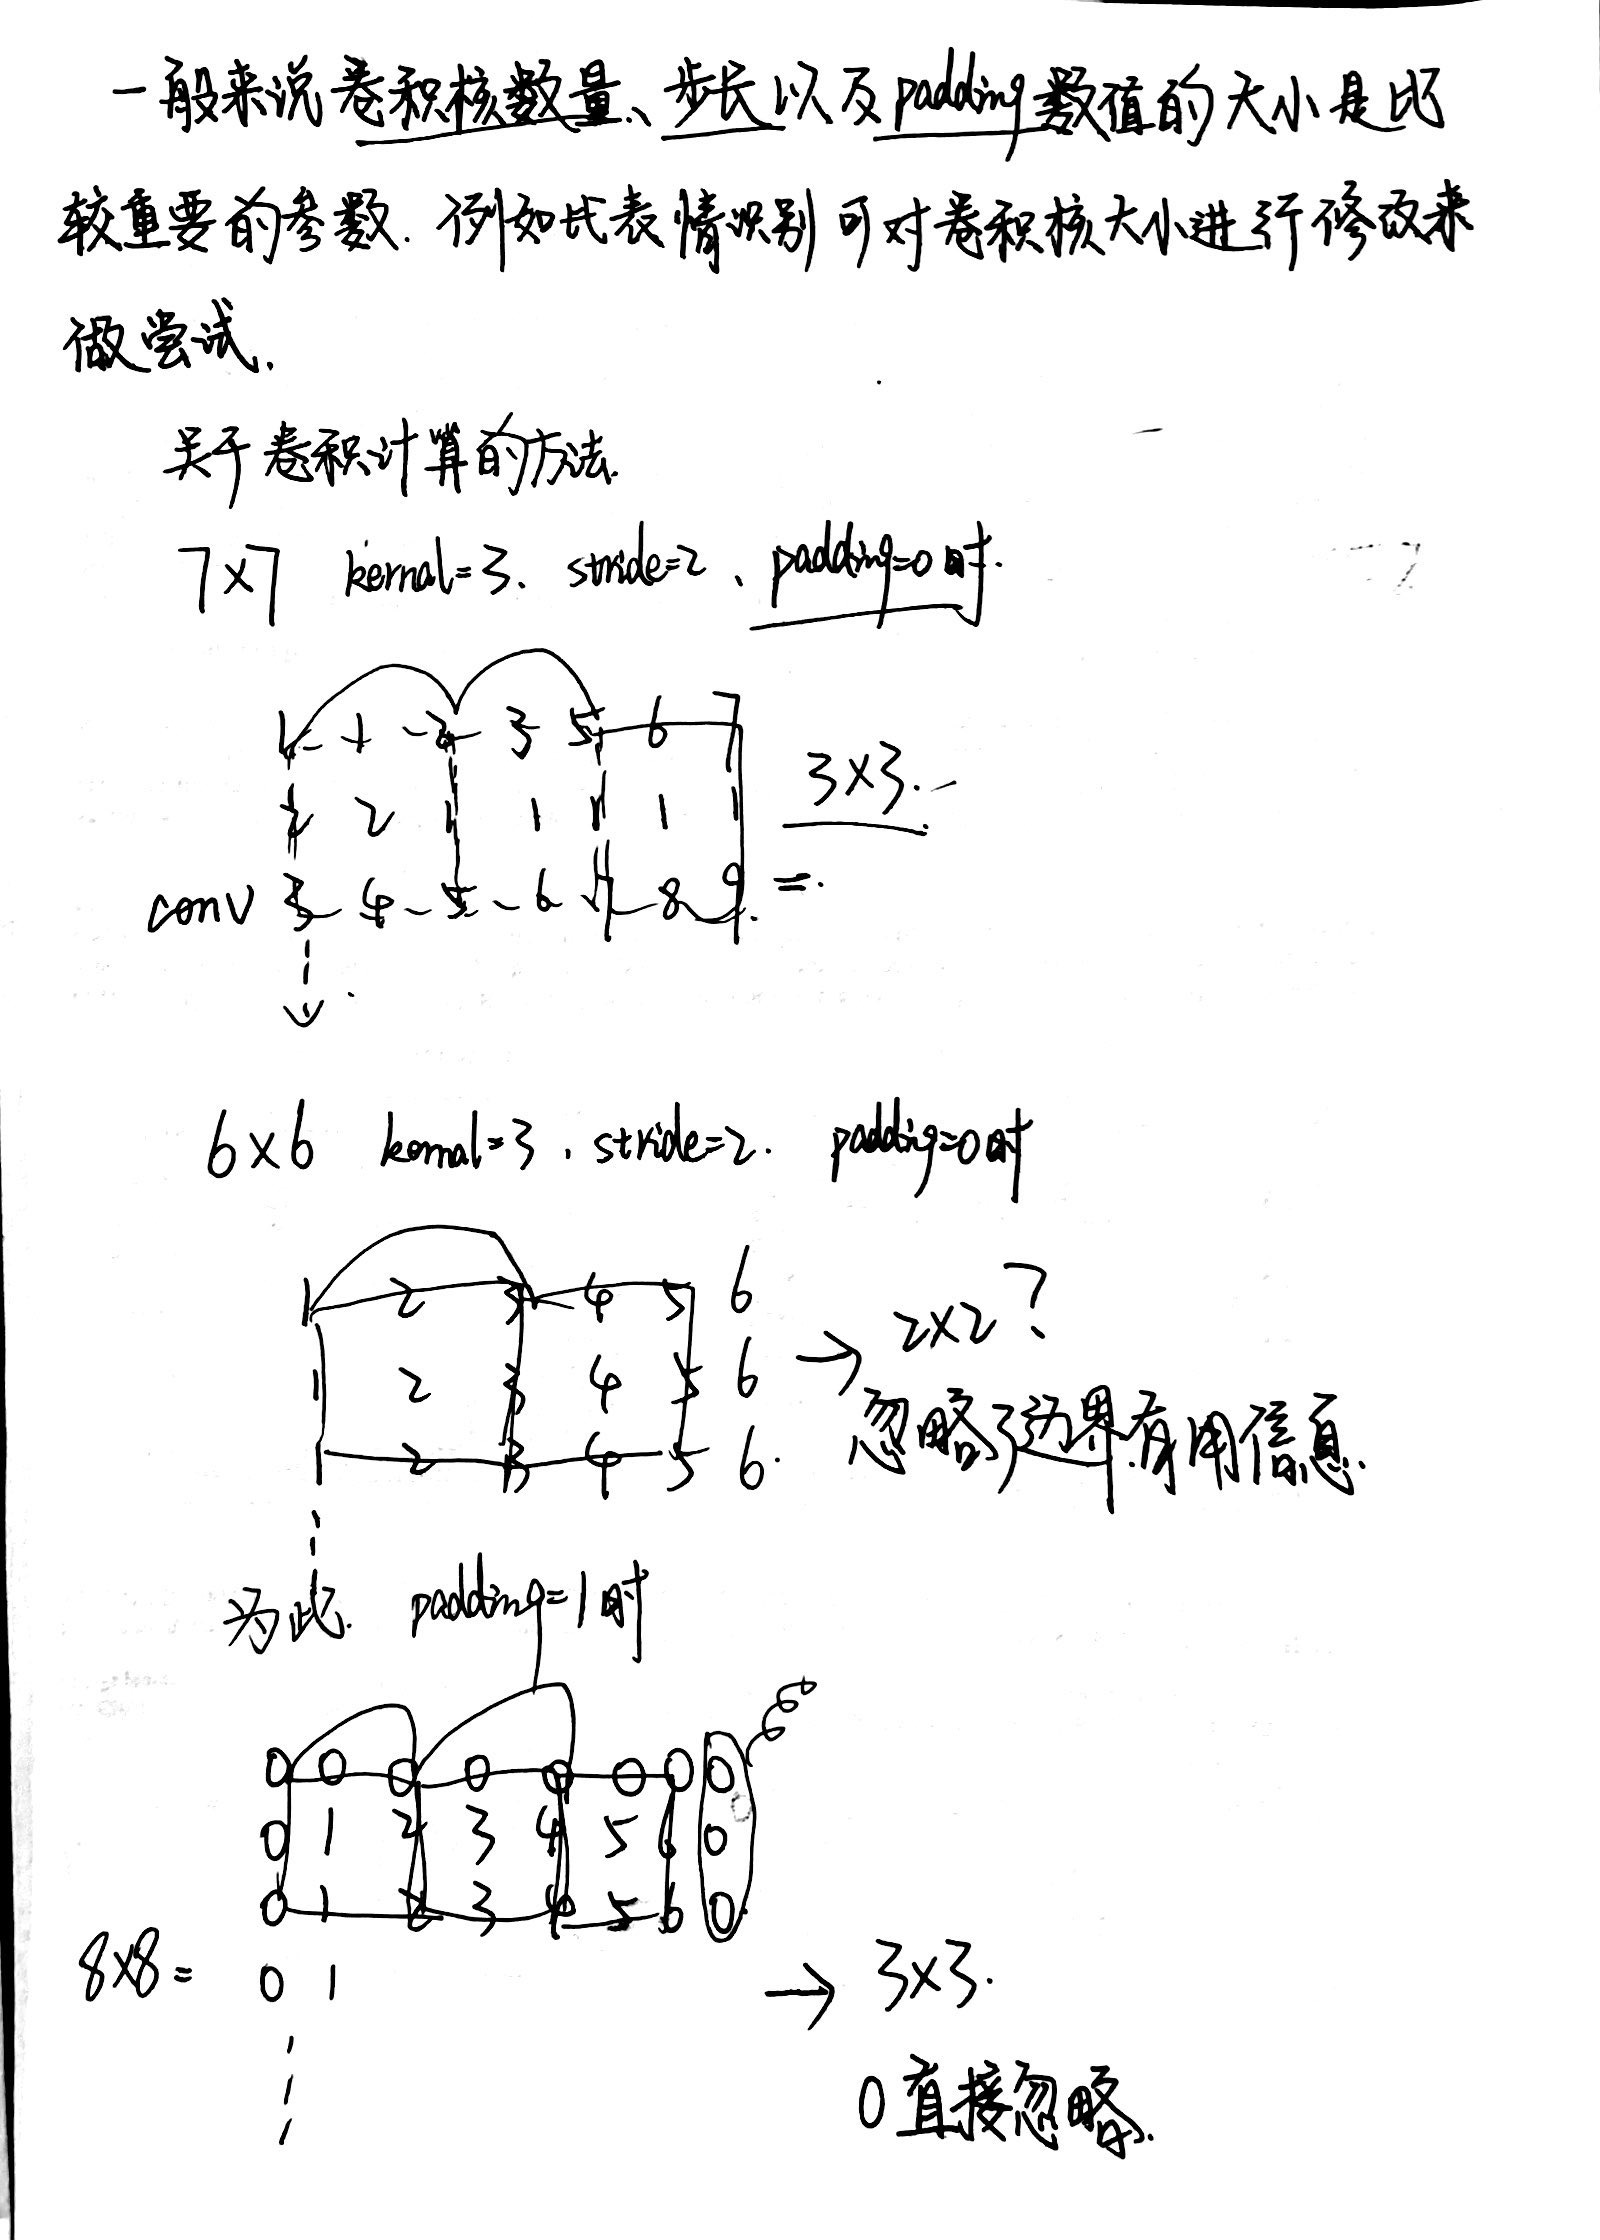 一般来说卷积核数量、步长以及padding数值的大小是比
较重要的参数. 例如比表情识别可对卷积核大小进行修改来
做尝试.
关于卷积计算的方法.
7×7 kernal=3. stride=2、padding=0时.
1 1 2 3 5 6 7
2 2 1 1 1 1 1
3×3.
conv 3 4 5 6 7 8 9 =.
6×6 kernal=3. stride=2. padding=0时
1 2 3 4 5 6
1 2 3 4 5 6
1 2 3 4 5 6.
→ 2×2?
忽略了边界有用信息.
为此. padding=1时
0 0 0 0 0 0 0 0
0 1 2 3 4 5 6 0
0 1 2 3 4 5 6 0
8×8= 0 1
→ 3×3.
0直接忽略.